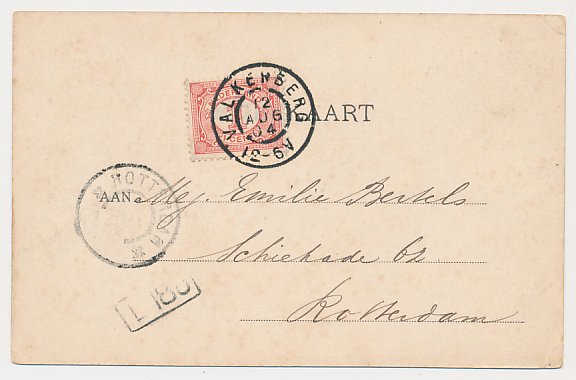 VALKENBERG
12
AUG
04
12-6V
AART
ROTT
AAN Mej. Emilie Bertels
Schiekade 62
Rotterdam
L 188